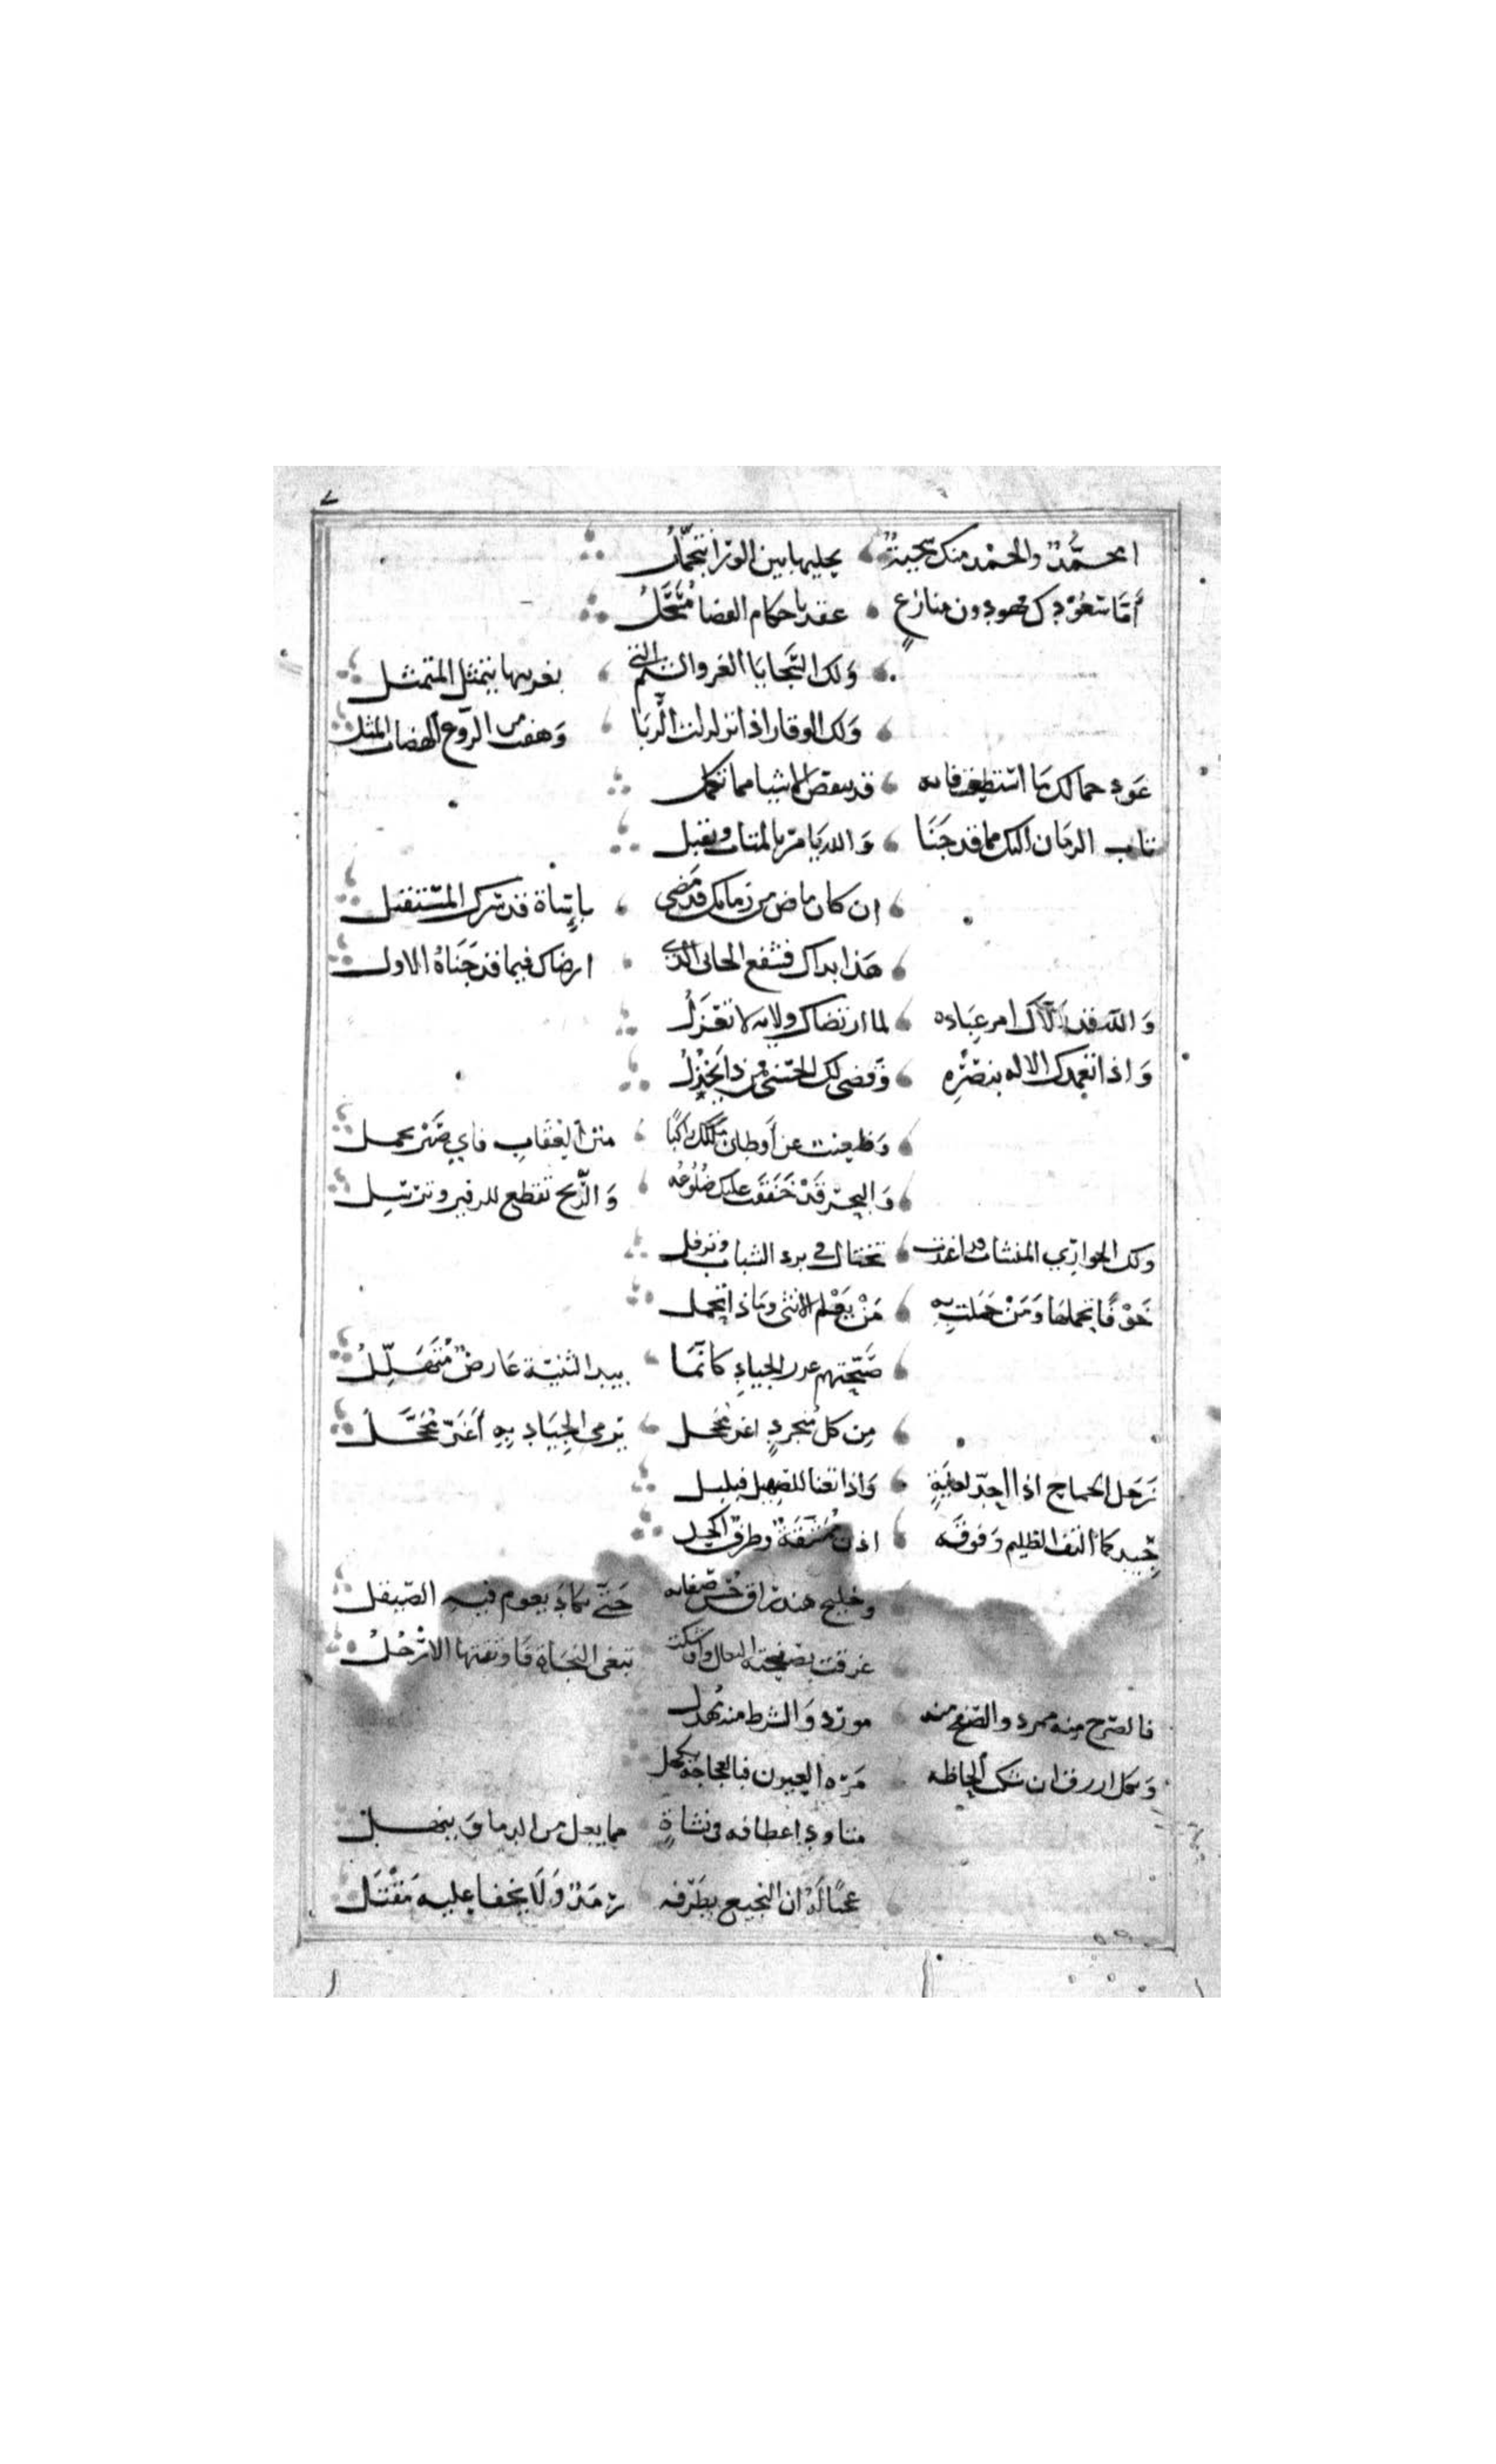 امحمّدٌ والحمْد منك سجيةٌ بحليها بين الورا يتجمّلُ
أمّا سعودك فهو دون منازعٍ عقد باحكام القضا مسجّلُ
وَلك السَّجايا الغر والشيم التي بغريبها يتمثل المتمثل
وَلك الوقار اذا تزلزلت الرُّبَا وَهفت من الروع الهضاب المثل
عَوذ كمالك مَا استطعت فانه قد تنقص الاشيا مما تكمل
تاب الزمان اليك مما قد جَنَا وَالله يَامر بالمتاب ويقبل
ان كان ماض من زمانك قد مَضى باساة قد سرك المستقبل
هَذا بذاك فشفع الجاني الذي ارضاك فيما قد جَنَاهُ الاول
وَالله قد ولّاك امر عِبَاده لما ارتضاك ولاية لا تعْزَلُ
وَاذا تغمدك الاله بنصْرِه وَقضى لك الحسْنى فمن ذا يَخْذِلُ
وَظعنت عن أوطان ملكك راكبًا متن العُقاب فاي صَبْر يجمل
وَالبحْر قَدْ خَفَقَت عليك ضُلُوعُه وَالرِّيح تقطع للزفير وترْسِل
ولك الجوارِي المنشات قد اغتدت تختال في برد الشباب وترفل
خَوْفًا يحملهَا وَمَنْ حَملت بِهِ مَنْ يَعْلم الانثى ومَا ذا تحمل
صَبَّحتهم غرر الجيادِ كأنَّمَا سد الثنيّة عَارضٌ مُتَهَلِّلُ
مِن كل منجردٍ اغر محجل يَرْمى الجِيَاد بِهِ أغَرّ مُحَجَّلُ
زَجل الجناح اذا اجدّ لغايةٍ وَاذا تغنا للصهيل فبلبل
جِيد كما التفت الظليم وَفوقَه اذن مُمَشَّقَةٌ وطرف اكحل
وخليج هند راق حُسْن صَفَائه حَتّى يكاد يعوم فيهِ الصّيقل
غرقت بصَفحته النمال واوشكت تبغي النجَاة فَاوثقتها الارْجُلُ
فالصَّرح مِنه ممرد والصَّفح منه مورّد وَالشط منه مهدل
وَبكل ازرق ان شكت الحاظه مَرَه العيون فبالعجاجة يكحل
متاود اعطافه في نشاةٍ مما يعل من الدماءِ وَينهل
عجبًا لَهُ ان النجيع بطَرْفه رَمَدٌ وَلَا يخفا عليه مَقْتَلُ